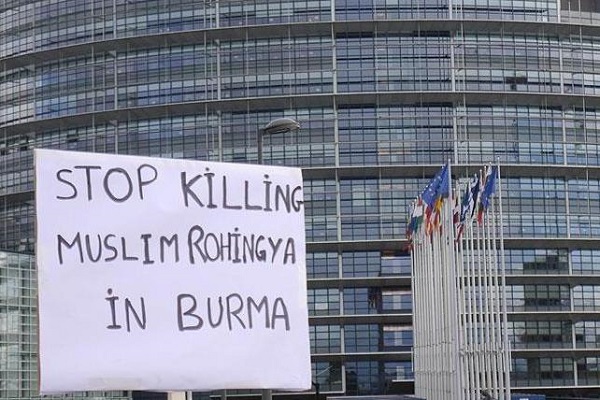 STOP KİLLİNG
MUSLIM ROHİNGYA
İN BURMA